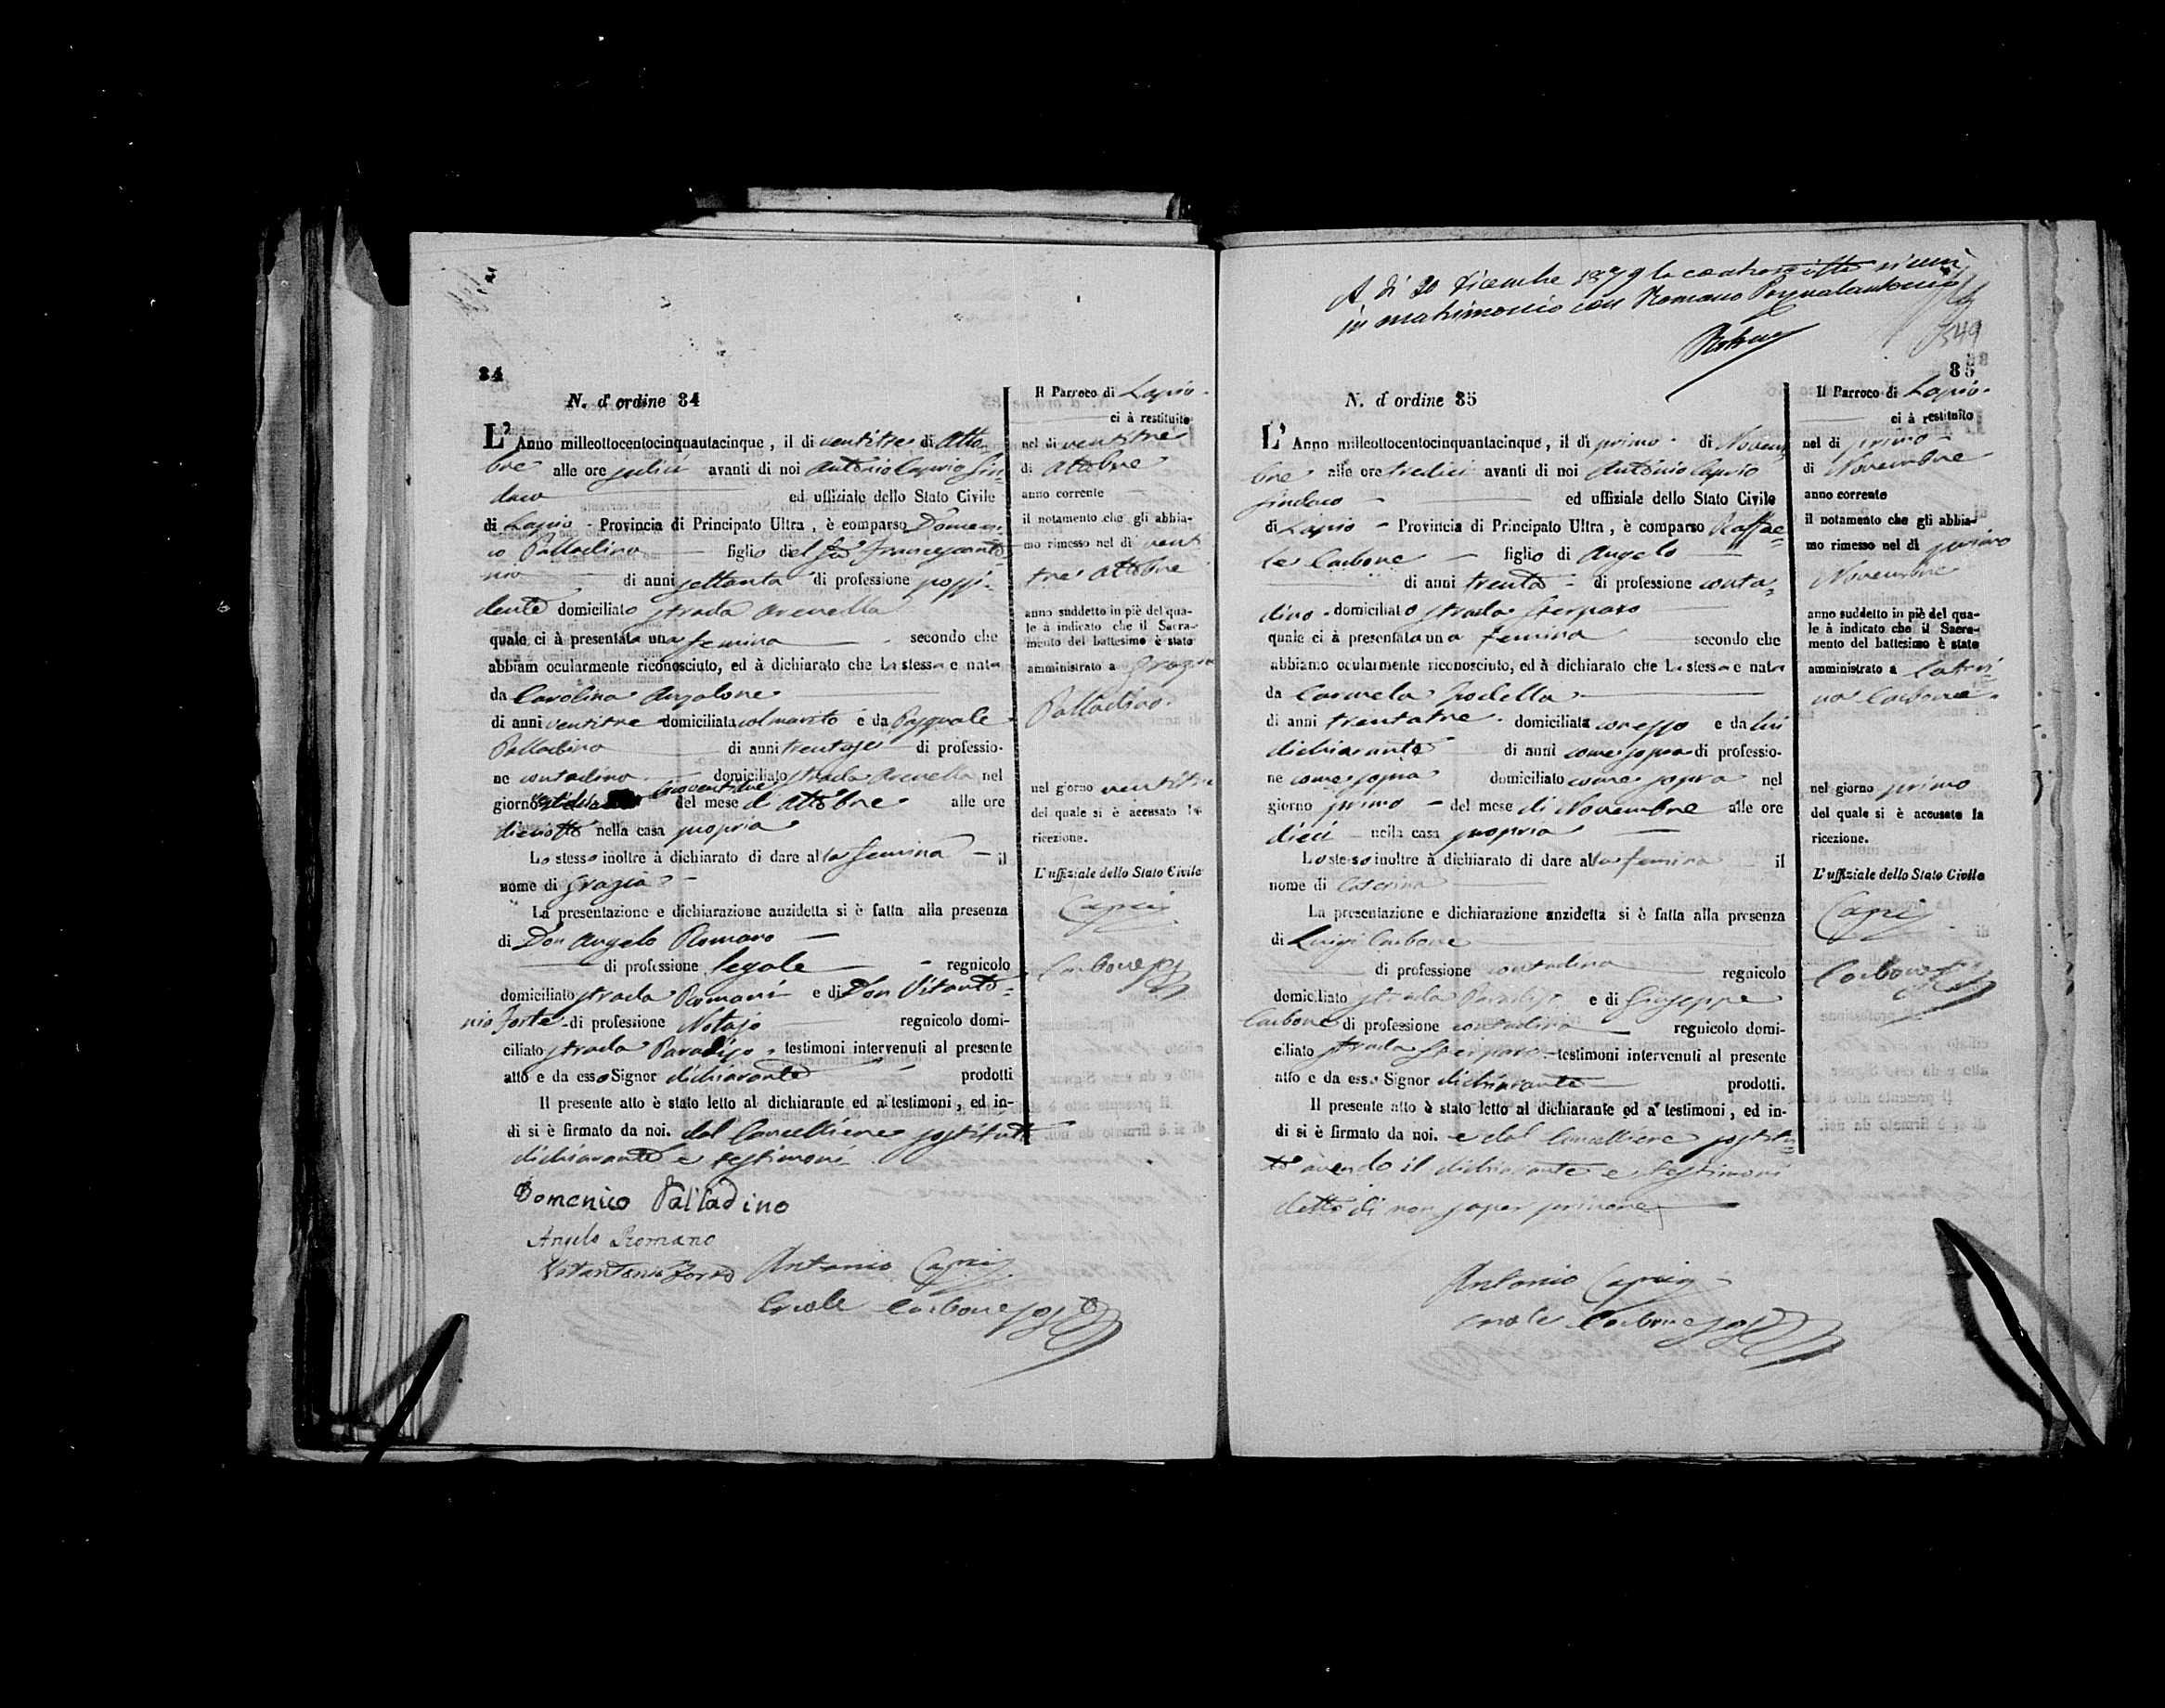 84
N. d' ordine 84
L' Anno milleottocentocinquantacinque, il di ventitre di Otto-
bre alle ore sedici avanti di noi Antonio Caprio Sin-
daco ed uffiziale dello Stato Civile
di Lapio - Provincia di Principato Ultra, è comparso Domeni-
co Palladino figlio del fu Francescanto-
nio di anni settanta di professione possi-
dente domiciliato strada Arenella
quale ci à presentata una femina secondo che
abbiam ocularmente riconosciuto, ed à dichiarato che La stessa e nata
da Carolina Anzalone
di anni ventitre domiciliata col marito e da Pasquale
Palladino di anni trentasei di professio-
ne contadino domiciliato strada Arenella nel
giorno del mese di Ottobre alle ore
diciotto nella casa propria
Lo stesso inoltre à dichiarato di dare alla femina - il
nome di Grazia
La presentazione e dichiarazione anzidetta si è fatta alla presenza
di Don Angelo Romano
di professione legale regnicolo
domiciliato strada Romani e di Don Vitanto-
nio Forte di professione Notajo regnicolo domi-
ciliato strada Paradiso - testimoni intervenuti al presente
atto e da esso Signor dichiarante prodotti
Il presente atto è stato letto al dichiarante ed a' testimoni, ed in-
di si è firmato da noi. dal Cancelliere sostituto
dichiarante e testimoni
Domenico Palladino
Angelo Romano
Vitantonio Forte Antonio Caprio
Ercole Carbone sost
Il Parroco di Lapio.
ci à restituito
nel di ventitre
di Ottobre
anno corrente
il notamento che gli abbia-
mo rimesso nel di venti
tre Ottobre
anno suddetto in piè del qua-
le à indicato che il Sacra-
mento del battesimo è stato
amministrato a Grazia
Palladino.
nel giorno ventitre
del quale si è accusato la
ricezione.
L' uffiziale dello Stato Civile
Caprio
Carbone sost
A dì 20 Dicembre 1879 la controscritta si unì
in matrimonio con Romano Pasqualantonio
349
85
N. d' ordine 85
L' Anno milleottocentocinquantacinque, il di primo di Novem-
bre alle ore tredici avanti di noi Antonio Caprio
Sindaco ed uffiziale dello Stato Civile
di Lapio - Provincia di Principato Ultra, è comparso Raffae-
le Carbone figlio di Angelo
di anni trenta - di professione conta-
dino - domiciliato strada Sterparo
quale ci à presentata una femina secondo che
abbiamo ocularmente riconosciuto, ed à dichiarato che La stessa e nata
da Carmela Iodella
di anni trentatre - domiciliata con esso e da lui
dichiarante di anni come sopra di professio-
ne come sopra domiciliato come sopra nel
giorno primo - del mese di Novembre alle ore
dieci nella casa propria
Lo stesso inoltre à dichiarato di dare alla femina il
nome di Caterina
La presentazione e dichiarazione anzidetta si è fatta alla presenza
di Luigi Carbone
di professione contadino regnicolo
domiciliato strada Paradiso e di Giuseppe
Carbone di professione contadino regnicolo domi-
ciliato strada Sterparo - testimoni intervenuti al presente
atto e da esso Signor dichiarante prodotti.
Il presente atto è stato letto al dichiarante ed a' testimoni, ed in-
di si è firmato da noi. e dal Cancelliere sostitu-
to avendo il dichiarante e testimoni
detto di non saper scrivere
Antonio Caprio
Ercole Carbone sost
Il Parroco di Lapio.
ci à restituito
nel di primo
di Novembre
anno corrente
il notamento che gli abbia-
mo rimesso nel dì primo
Novembre
anno suddetto in piè del qua-
le à indicato che il Sacra-
mento del battesimo è stato
amministrato a Cateri-
na Carbone.
nel giorno primo
del quale si è accusato la
ricezione.
L' uffiziale dello Stato Civile
Caprio
Carbone sost